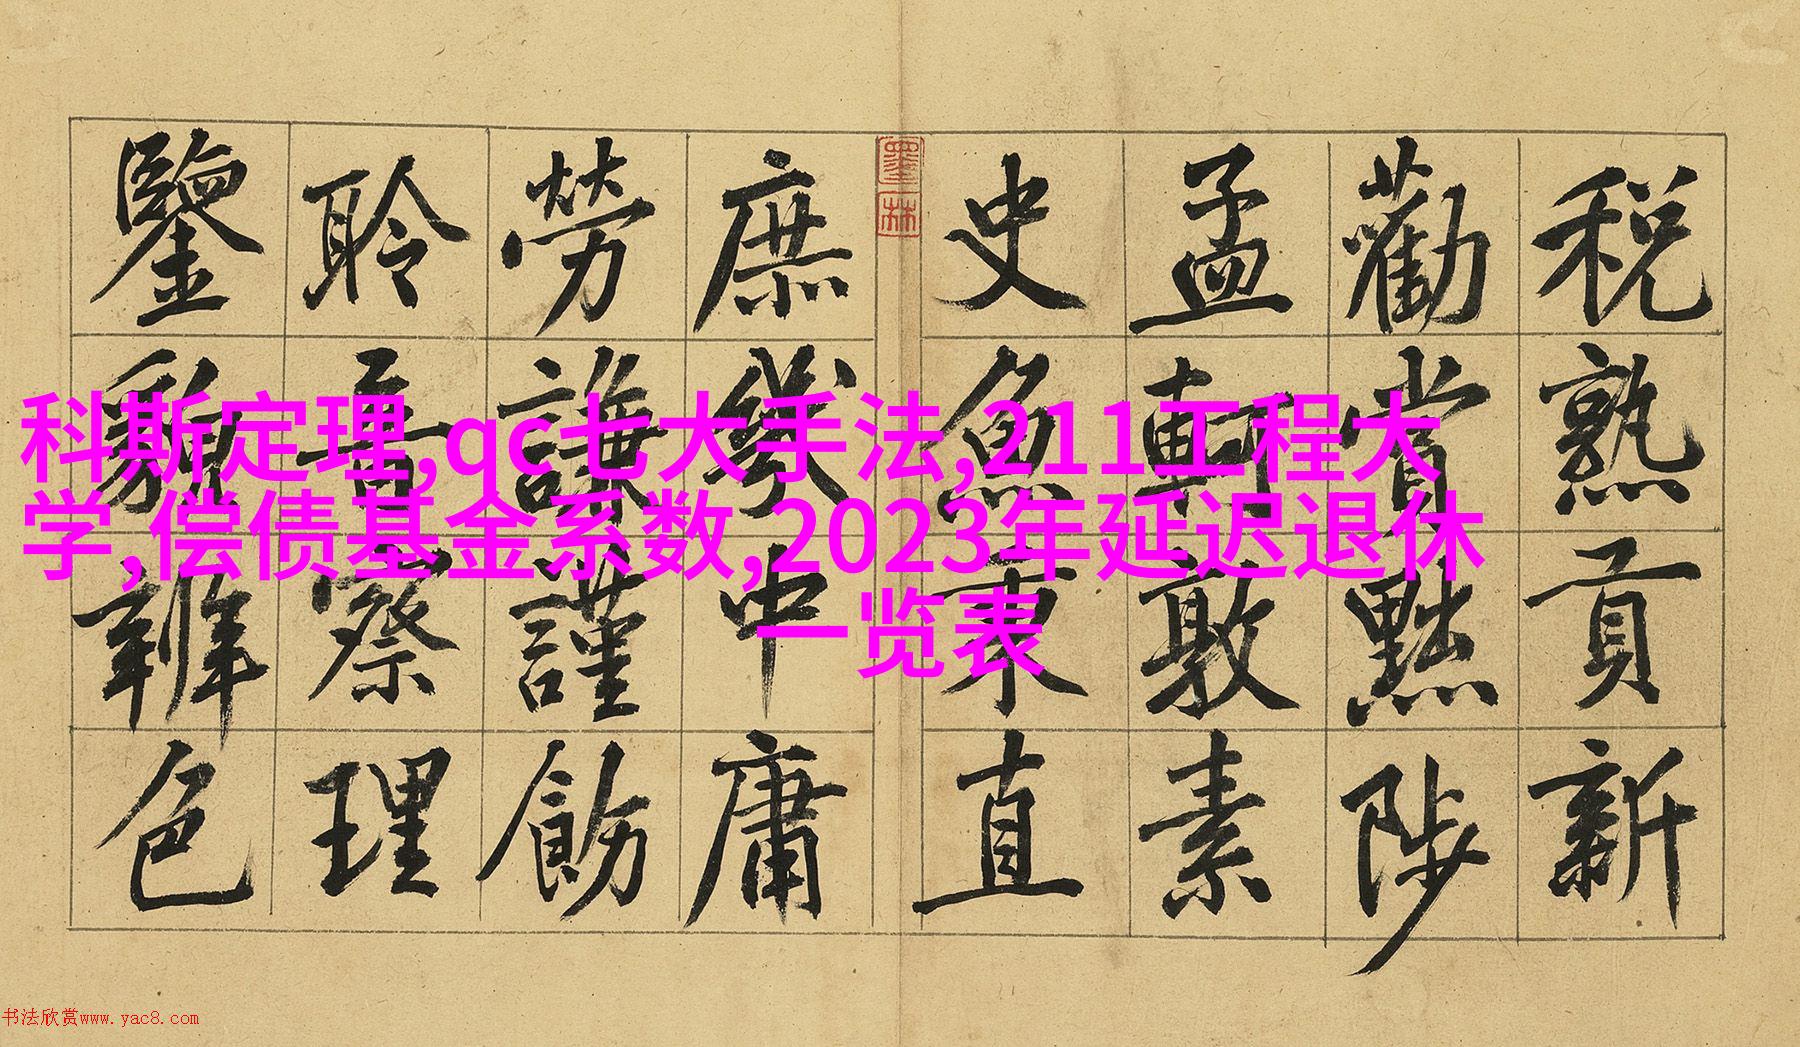 税熟貢新
勸賞黜陟
孟軻敦素
史魚秉直
墨林
庶幾中庸
勞謙謹飭
聆音察理
鑒貌辨色
科斯定理,qc七大手法,211工程大
学,偿债基金系数,2023年延迟退休
一览表
书法欣赏www.yac8.com